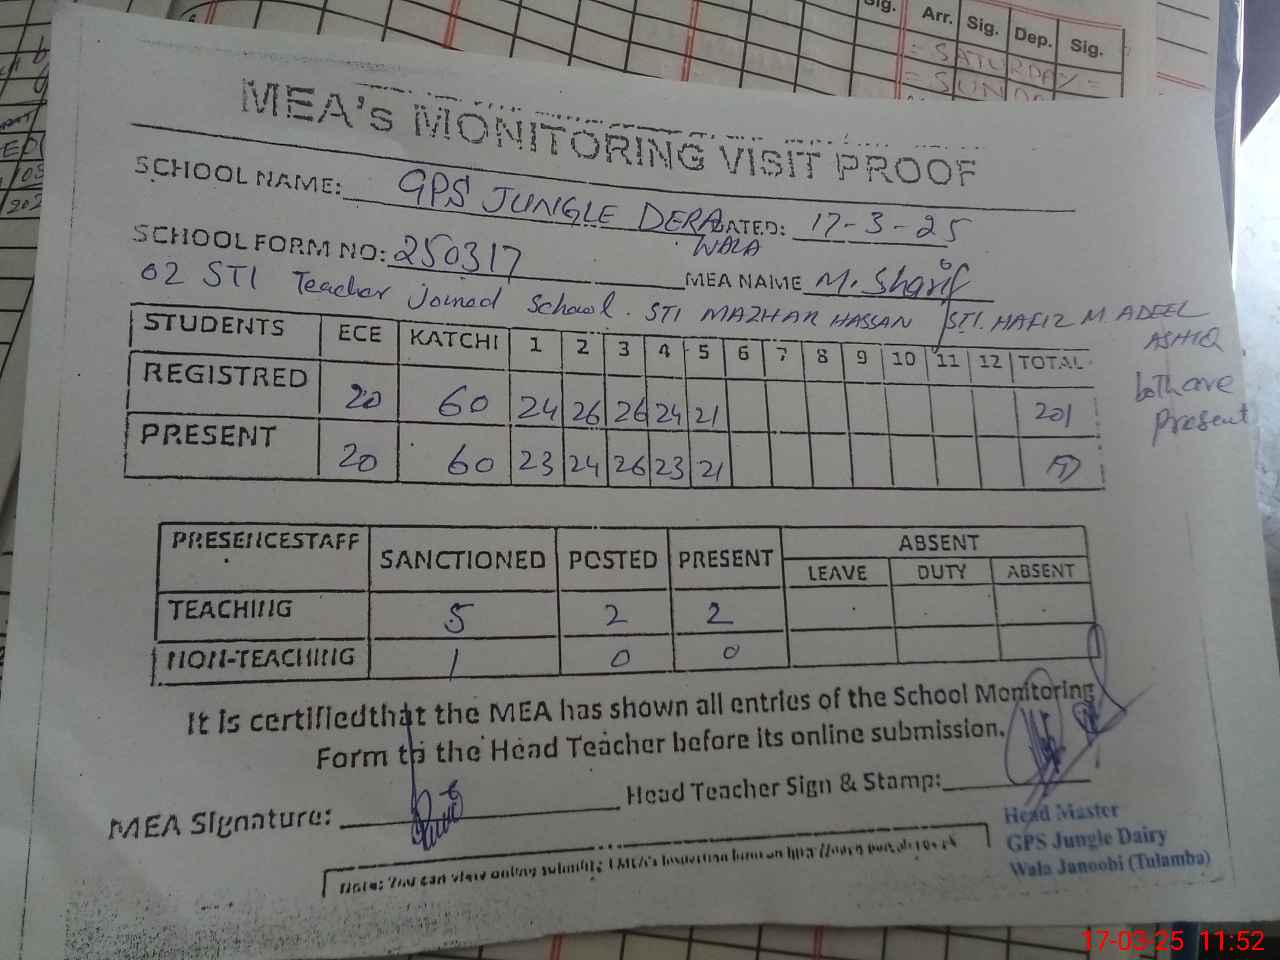 Sig.
Arr. Sig. Dep. Sig.
= SATURDAY =
MEA's MONITORING VISIT PROOF
SCHOOL NAME: GPS JUNGLE DERA WALA DATED: 17-3-25
SCHOOL FORM NO: 250317 MEA NAME M. Sharif
02 STI Teacher joined School. STI MAZHAR HASSAN STI. HAFIZ M ADEEL ASHIQ both are Present
STUDENTS ECE KATCHI 1 2 3 4 5 6 7 8 9 10 11 12 TOTAL
REGISTRED 20 60 24 26 26 24 21 201
PRESENT 20 60 23 24 26 23 21
PRESENCESTAFF SANCTIONED POSTED PRESENT ABSENT
LEAVE DUTY ABSENT
TEACHING 5 2 2
NON-TEACHING 1 0 0
It is certified that the MEA has shown all entries of the School Monitoring
Form to the Head Teacher before its online submission.
MEA Signature: Head Teacher Sign & Stamp:
Head Master
GPS Jungle Dairy
Wala Janoobi (Tulamba)
Note: You can view online
17-03-25 11:52